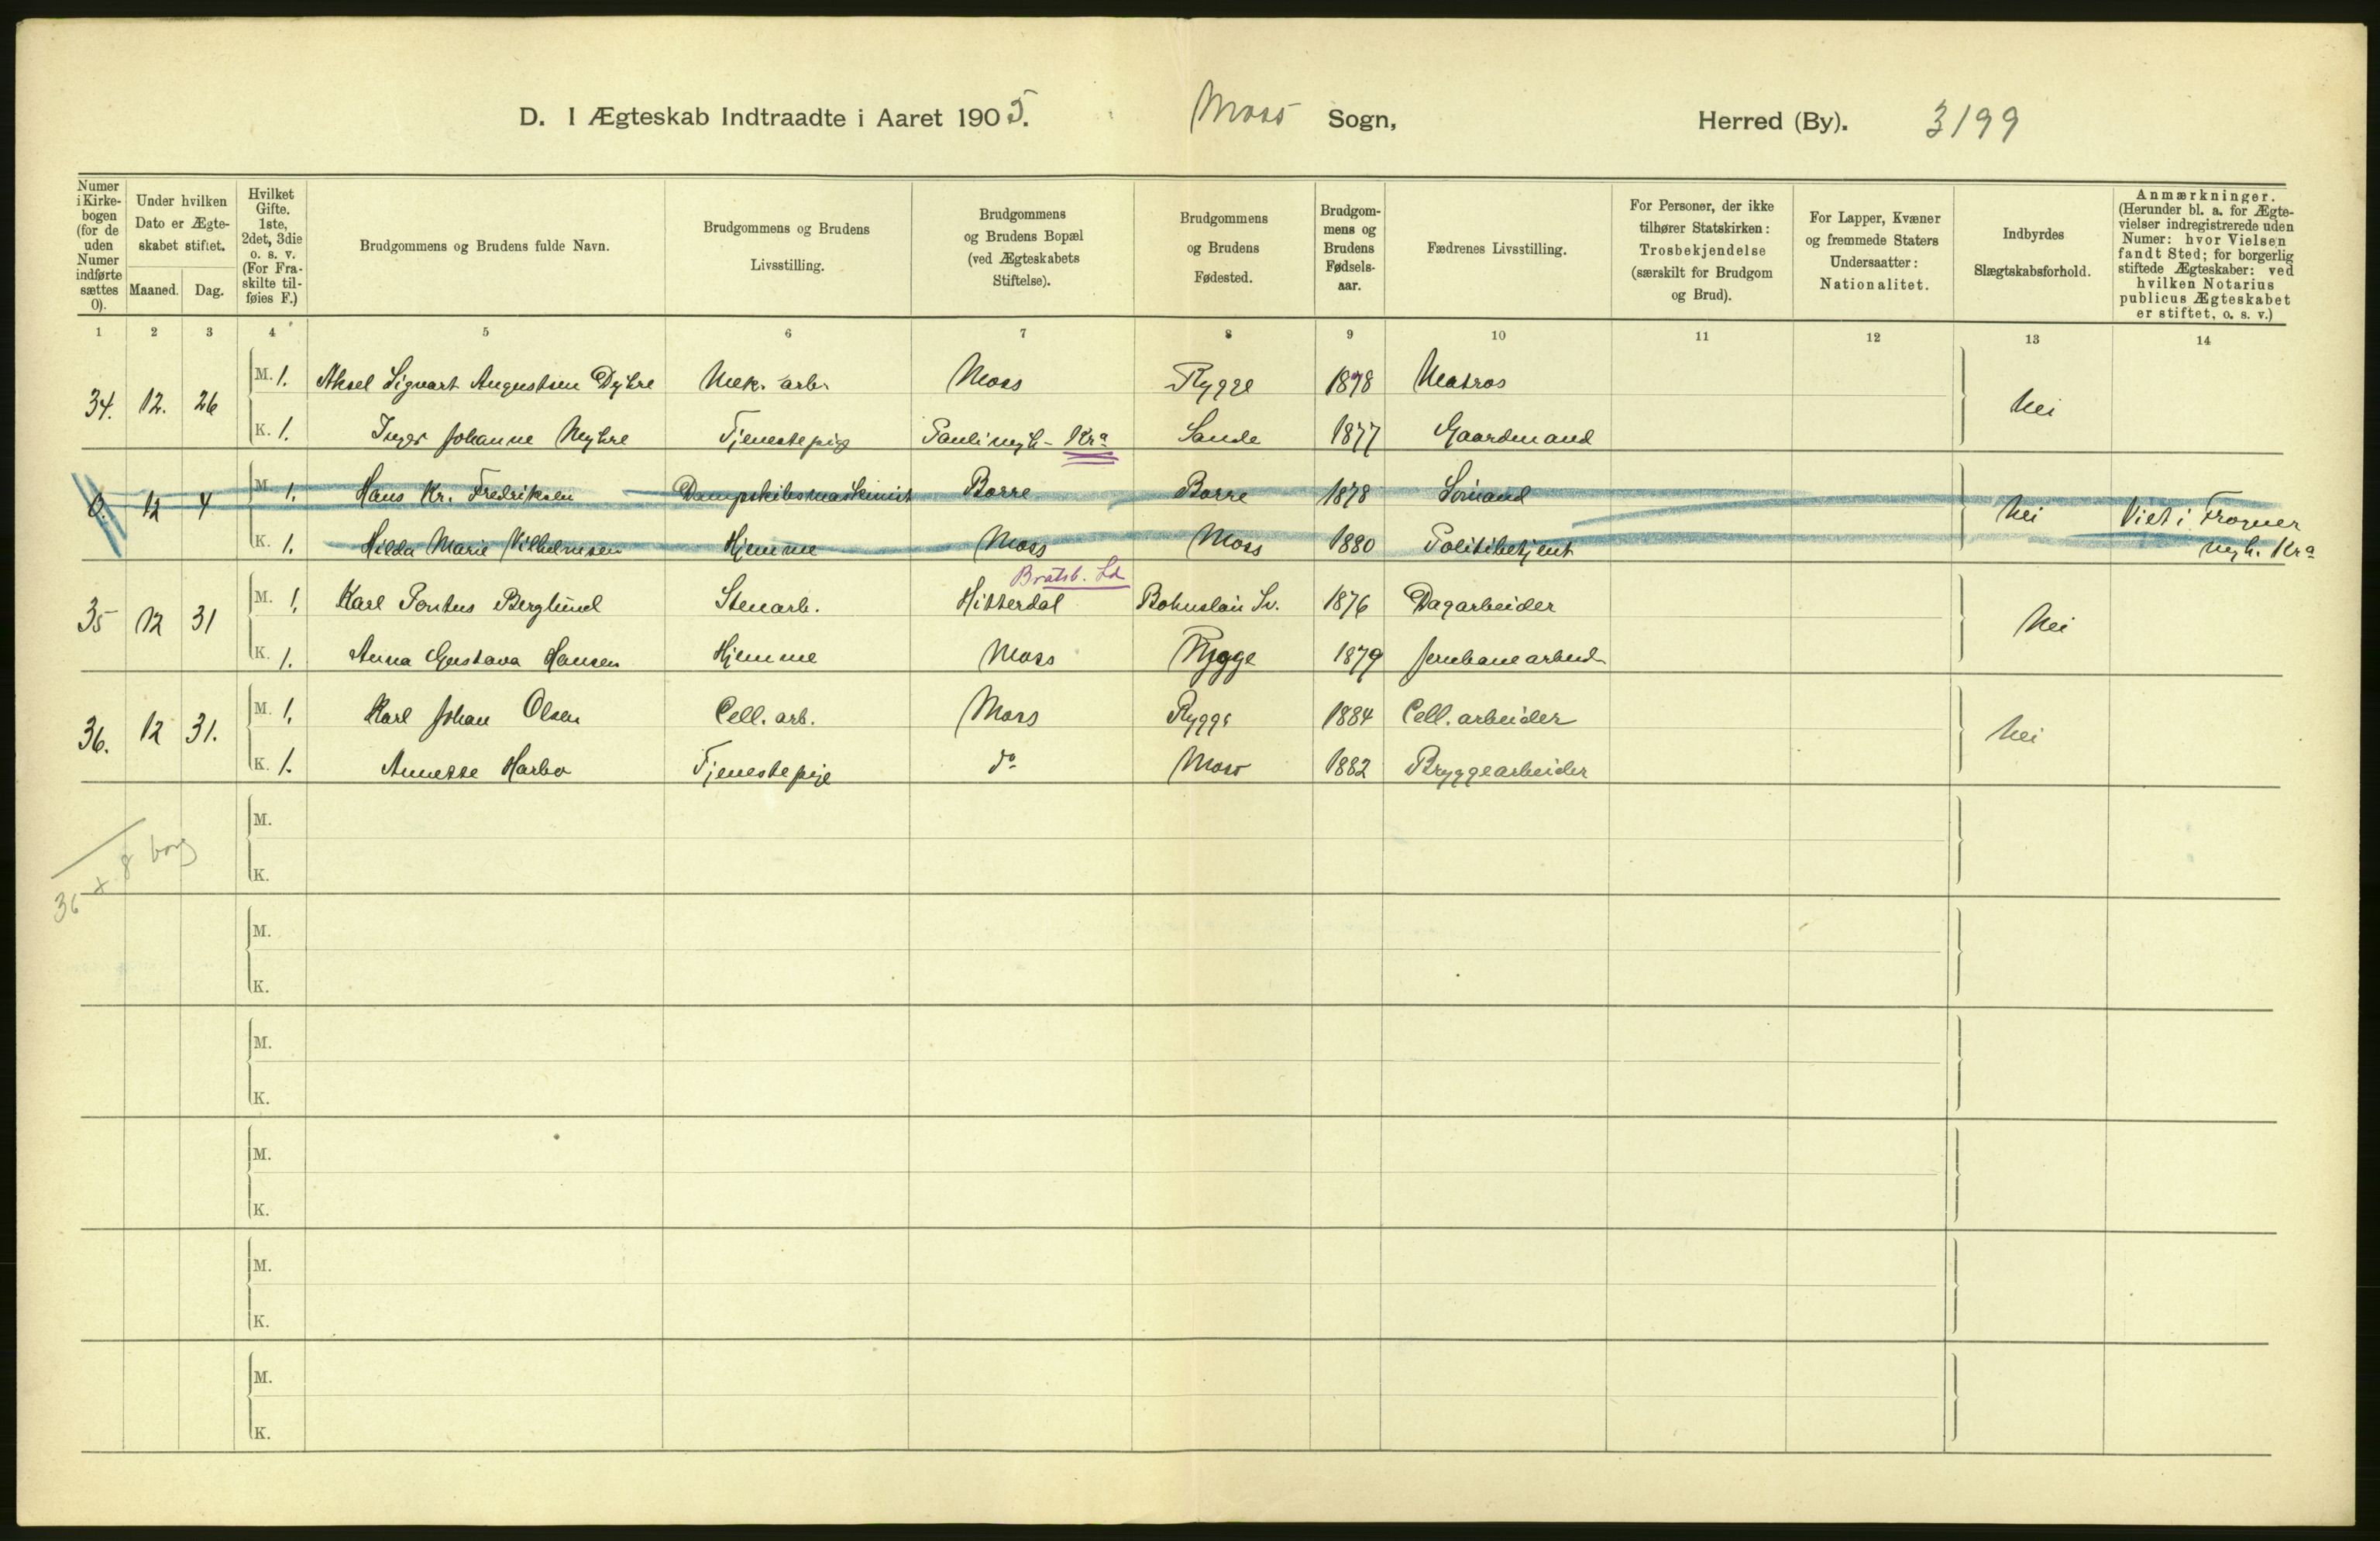 D. I Ægteskab Indtraadte i Aaret 1905. Moss Sogn, Herred (By). 3199
Numer i Kirkebogen (for de uden Numer indførte sættes 0).
Under hvilken Dato er Ægteskabet stiftet.
Maaned. Dag.
Hvilket Gifte. 1ste, 2det, 3die o. s. v. (For Fraskilte tilføies F.)
Brudgommens og Brudens fulde Navn.
Brudgommens og Brudens Livsstilling.
Brudgommens og Brudens Bopæl (ved Ægteskabets Stiftelse).
Brudgommens og Brudens Fødested.
Brudgommens og Brudens Fødselsaar.
Fædrenes Livsstilling.
For Personer, der ikke tilhører Statskirken: Trosbekjendelse (særskilt for Brudgom og Brud).
For Lapper, Kvæner og fremmede Staters Undersaatter: Nationalitet.
Indbyrdes Slægtskabsforhold.
Anmærkninger. (Herunder bl. a. for Ægtevielser indregistrerede uden Numer: hvor Vielsen fandt Sted; for borgerlig stiftede Ægteskaber: ved hvilken Notarius publicus Ægteskabet er stiftet, o. s. v.)
1 2 3 4 5 6 7 8 9 10 11 12 13 14
34. 12. 26 M. 1. Aksel Sigvart Augustsen Dyhre Mek. arb. Moss Rygge 1878 Matros nei
K. 1. Inger Johanne Myhre Tjenestepige Paulimgh - Kra Sande 1877 Gaardmand
0. 12 4 M. 1. Hans Kr. Fredriksen Dampskibsmaskinist Borre Borre 1878 Sømand nei Viet i Frogner
K. 1. Hilda Marie Vilhelmsen Hjemme Moss Moss 1880 Politibetjent mgh. Kra
Bratsb. Ld
35 12 31 M. 1. Karl Pontus Berglund Stenarb. Hitterdal Bohuslän Sv. 1876 Dagarbeider nei
K. 1. Anna Gustava Hansen Hjemme Moss Rygge 1879 Jernbanearbeid.
36. 12 31. M. 1. Karl Johan Olsen Cell. arb. Moss Rygge 1884 Cell. arbeider nei
K. 1. Annette Harbo Tjenestepige do Moss 1882 Bryggearbeider
M.
36 + 8 borg
K.
M.
K.
M.
K.
M.
K.
M.
K.
M.
K.